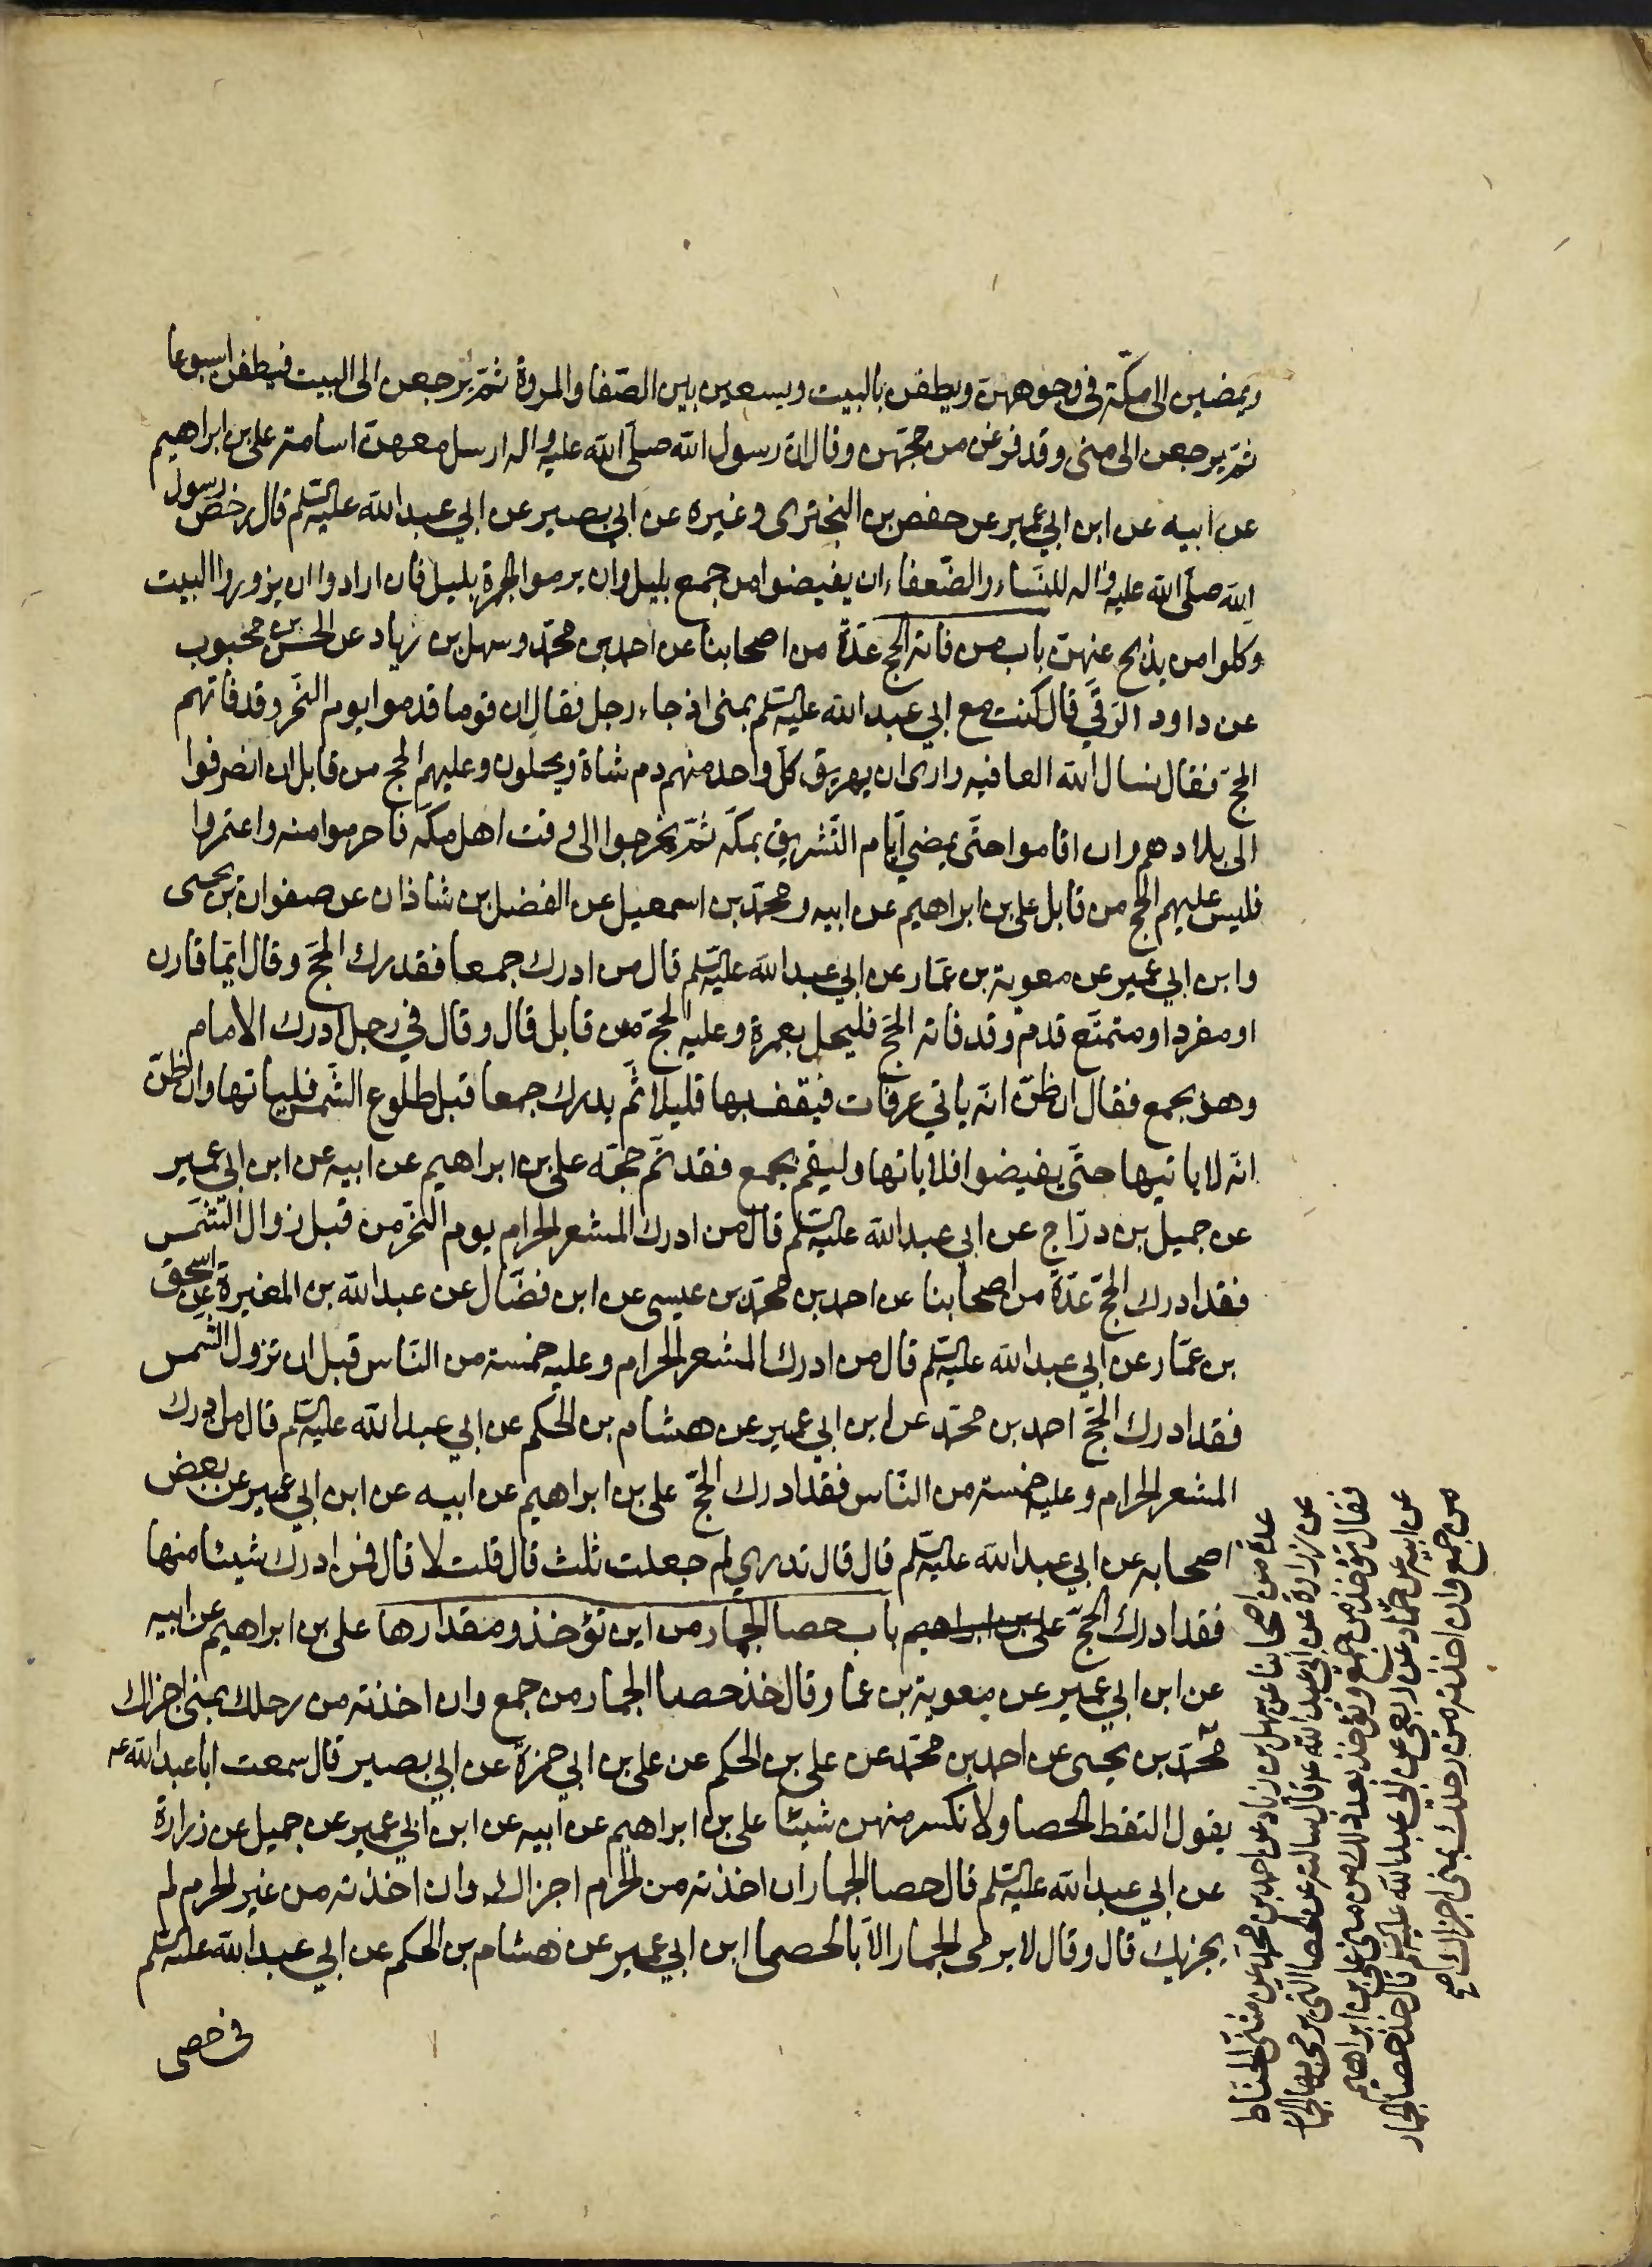 ويمضين الى مكّة فى وجوههنّ ويطفن بالبيت ويسعين بين الصّفا والمروة ثمّ يرجعن الى البيت فيطفن اسبوعا
ثمّ يرجعن الى منى وقد فرغن من حجّهن وقال انّ رسول الله صلّى الله عليه واله ارسل معهنّ اسامة علي بن ابراهيم
عن ابيه عن ابن ابي عمير عن حفص بن البخترى وغيره عن ابي بصير عن ابي عبد الله عليه السّلم قال رخص رسول
الله صلّى الله عليه واله للنّساء والضّعفاء ان يفيضوا من جمع بليل وان يرموا الجمرة بليل فان ارادوا ان يزوروا البيت
وكلوا من يذبح عنهنّ باب من فاته الحج عدّة من اصحابنا عن احمد بن محمّد وسهل بن زياد عن الحسن بن محبوب
عن داود الرّقّي قال كنت مع ابي عبد الله عليه السّلم بمنى اذ جاء رجل فقال ان قوما قدموا يوم النّحر وقد فاتهم
الحجّ فقال نسال الله العافيه وارى ان يهريق كلّ واحد منهم دم شاة ويحلّون وعليهم الحج من قابل ان انصرفوا
الى بلادهم وان اقاموا حتّى يمضي ايّام التّشريق بمكّه ثمّ يخرجوا الى وقت اهل مكّه فاحرموا منه واعتمروا
فليس عليهم الحج من قابل علي بن ابراهيم عن ابيه ومحمّد بن اسمعيل عن الفضل بن شاذان عن صفوان بن يحيى
وابن ابي عمير عن معوية بن عمّار عن ابي عبد الله عليه السّلم قال من ادرك جمعا فقد درك الحجّ وقال ايّما قارن
او مفرد او متمتّع قدم وقد فاته الحجّ فليحل بعمرة وعليه الحجّ من قابل قال وقال في رجل ادرك الامام
وهو بجمع فقال ان ظنّ انّه ياتي عرفات فيقف بها قليلا ثمّ يدرك جمعا قبل طلوع الشّمس فلياتها وان ظنّ
انّه لا ياتيها حتّى يفيضوا فلا ياتها وليقم بجمع فقد تمّ حجّه علي بن ابراهيم عن ابيه عن ابن ابي عمير
عن جميل بن درّاج عن ابي عبد الله عليه السّلم قال من ادرك المشعر الحرام يوم النّحر من قبل زوال الشّمس
فقد ادرك الحجّ عدّة من اصحابنا عن احمد بن محمّد بن عيسى عن ابن فضّال عن عبد الله بن المغيرة عن اسحق
بن عمّار عن ابي عبد الله عليه السّلم قال من ادرك المشعر الحرام وعليه خمسة من النّاس قبل ان تزول الشّمس
فقد ادرك الحجّ احمد بن محمّد عن ابن ابي عمير عن هشام بن الحكم عن ابي عبد الله عليه السّلم قال من ادرك
المشعر الحرام وعليه خمسة من النّاس فقد ادرك الحجّ علي بن ابراهيم عن ابيه عن ابن ابي عمير عن بعض
اصحابه عن ابي عبد الله عليه السّلم قال قال تدري لم جعلت ثلث قال قلت لا قال فمن ادرك شيئا منها
فقد ادرك الحجّ علي بن ابراهيم باب حصا الجمار من اين تؤخذ ومقدارها علي بن ابراهيم عن ابيه
عن ابن ابي عمير عن معوية بن عمار قال خذ حصا الجمار من جمع وان اخذته من رحلك بمنى اجزاك
محمّد بن يحيى عن احمد بن محمّد عن علي بن الحكم عن علي بن ابي حمزة عن ابي بصير قال سمعت ابا عبد الله عه
يقول التقط الحصا ولا تكسر منهن شيئا علي بن ابراهيم عن ابيه عن ابن ابي عمير عن جميل عن زرارة
عن ابي عبد الله عليه السّلم قال حصا الجمار ان اخذته من الحرام اجزاك وان اخذته من غير الحرم لم
يجزيك قال وقال لا يرمى الجمار الّا بالحصا ابن ابي عمير عن هشام بن الحكم عن ابي عبد الله عليه السّلم
فى حصى
عدّة من اصحابنا عن سهل بن زياد عن احمد بن محمّد عن مثنّى الحنّاط
عن زرارة عن ابي عبد الله عه قال سالته عن الحصا التى يرمى بها الجمار
فقال تؤخذ من جمع وتؤخذ بعد ذلك من منى علي بن ابراهيم
عن ابيه عن حمّاد عن ربعى عن ابي عبد الله عليه السّلم قال خذ حصا الجمار
من جمع وان اخذته من رحلك بمنى اجزاك صح